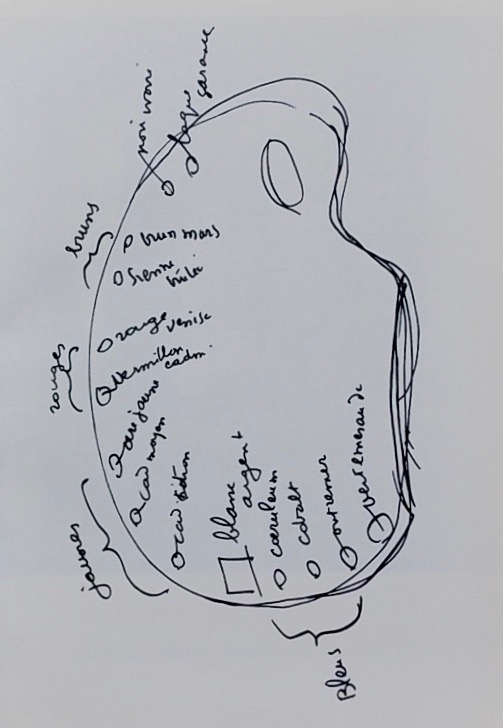 noir ivoire
laque garance
bruns
brun mars
sienne
brulée
rouges
rouge venise
vermillon
cadm.
jaunes
ocre jaune
cad moyen
cad citron
blanc
argent
coeruleum
cobalt
outremer
vert emeraude
Bleus